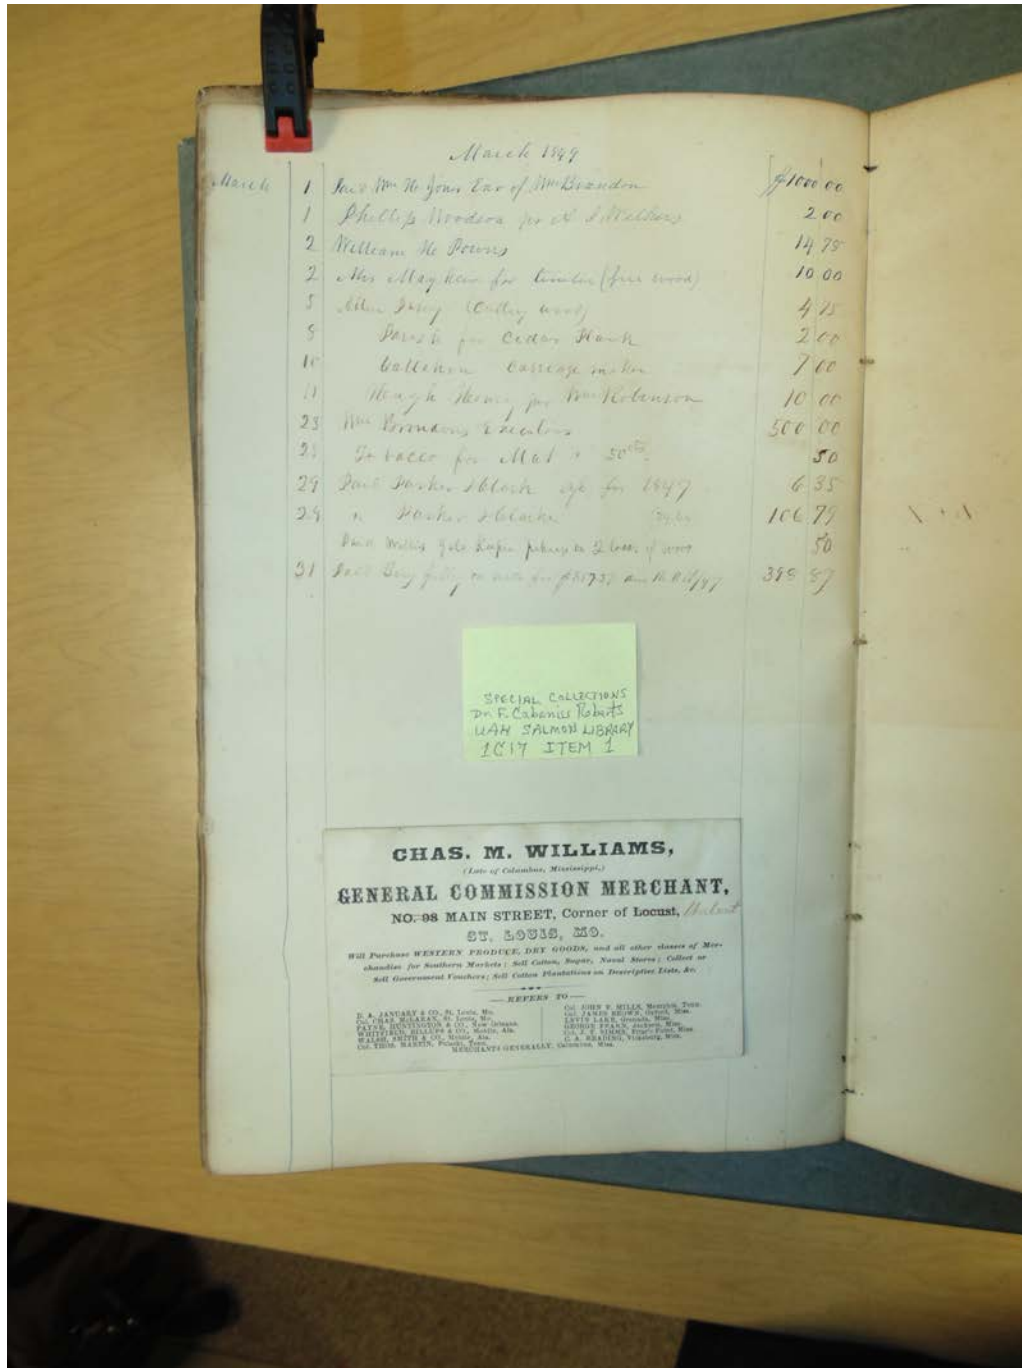 March 1849
March 1 Paid Wm H. Jones Exr of Wm Brandon $1000 00
1 Phillip Woodson for 2 00
2 William H Powers 14 75
2 Mrs Mayhew for timber (fire wood) 10 00
5 (Cutting wood) 4 75
8 for Cedar Plank 2 00
10 Callahan Carriage maker 7 00
11 Hough Henry for Wm Robinson 10 00
23 Wm Brandons Executors 500 00
23 Tobacco for Mat 50 cts 50
29 Paid Parker & Clark for 1847 6 35
29 " Parker & Clarke 106 79
Paid Gate Keeper 2 loads of wood 50
31 Paid on note for 398 87
SPECIAL COLLECTIONS
Dr. F. Cabaniss Roberts
UAH SALMON LIBRARY
1C17 ITEM 1
CHAS. M. WILLIAMS,
(Late of Columbus, Mississippi,)
GENERAL COMMISSION MERCHANT,
NO. 98 MAIN STREET, Corner of Locust,
ST. LOUIS, MO.
Will Purchase WESTERN PRODUCE, DRY GOODS, and all other classes of Mer-
chandise for Southern Markets; Sell Cotton, Sugar, Naval Stores; Collect or
Sell Government Vouchers; Sell Cotton Plantations on Descriptive Lists, &c.
REFERS TO
D. A. JANUARY & CO., St. Louis, Mo.
Col. CHAS. McLARAN, St. Louis, Mo.
PAYNE, HUNTINGTON & CO., New Orleans.
WHITFIELD, BILLUPS & CO., Mobile, Ala.
WALSH, SMITH & CO., Mobile, Ala.
Col. THOS. MARTIN, Pulaski, Tenn.
Col. JOHN S. MILLS, Memphis, Tenn.
Col. JAMES BROWN, Oxford, Miss.
LEVIN LAKE, Grenada, Miss.
GEORGE FEARN, Jackson, Miss.
Col. J. T. SIMMS, Miss.
C. A. READING, Vicksburg, Miss.
MERCHANTS GENERALLY, Columbus, Miss.